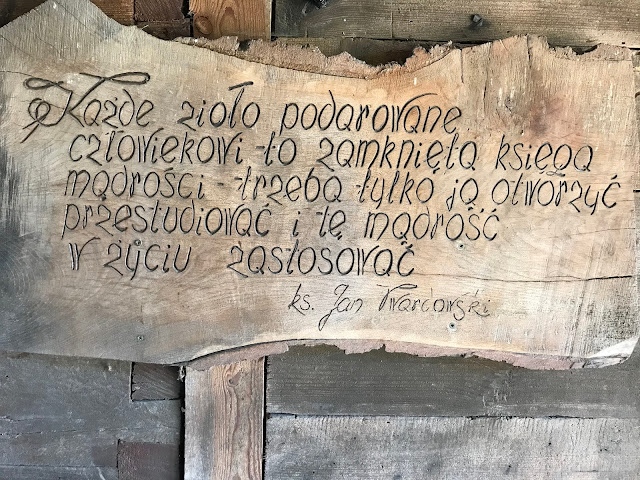 Każde zioło podarowane
człowiekowi to zamknięta księga
mądrości - trzeba tylko ją otworzyć -
przestudiować i tę mądrość
w życiu zastosować
ks. Jan Twardowski